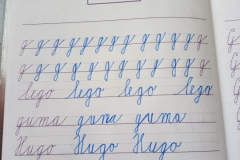 g g g g g g g g g g g g
g g g g g g g g g g g g
lego lego lego lego
guma guma guma
Hugo Hugo Hugo